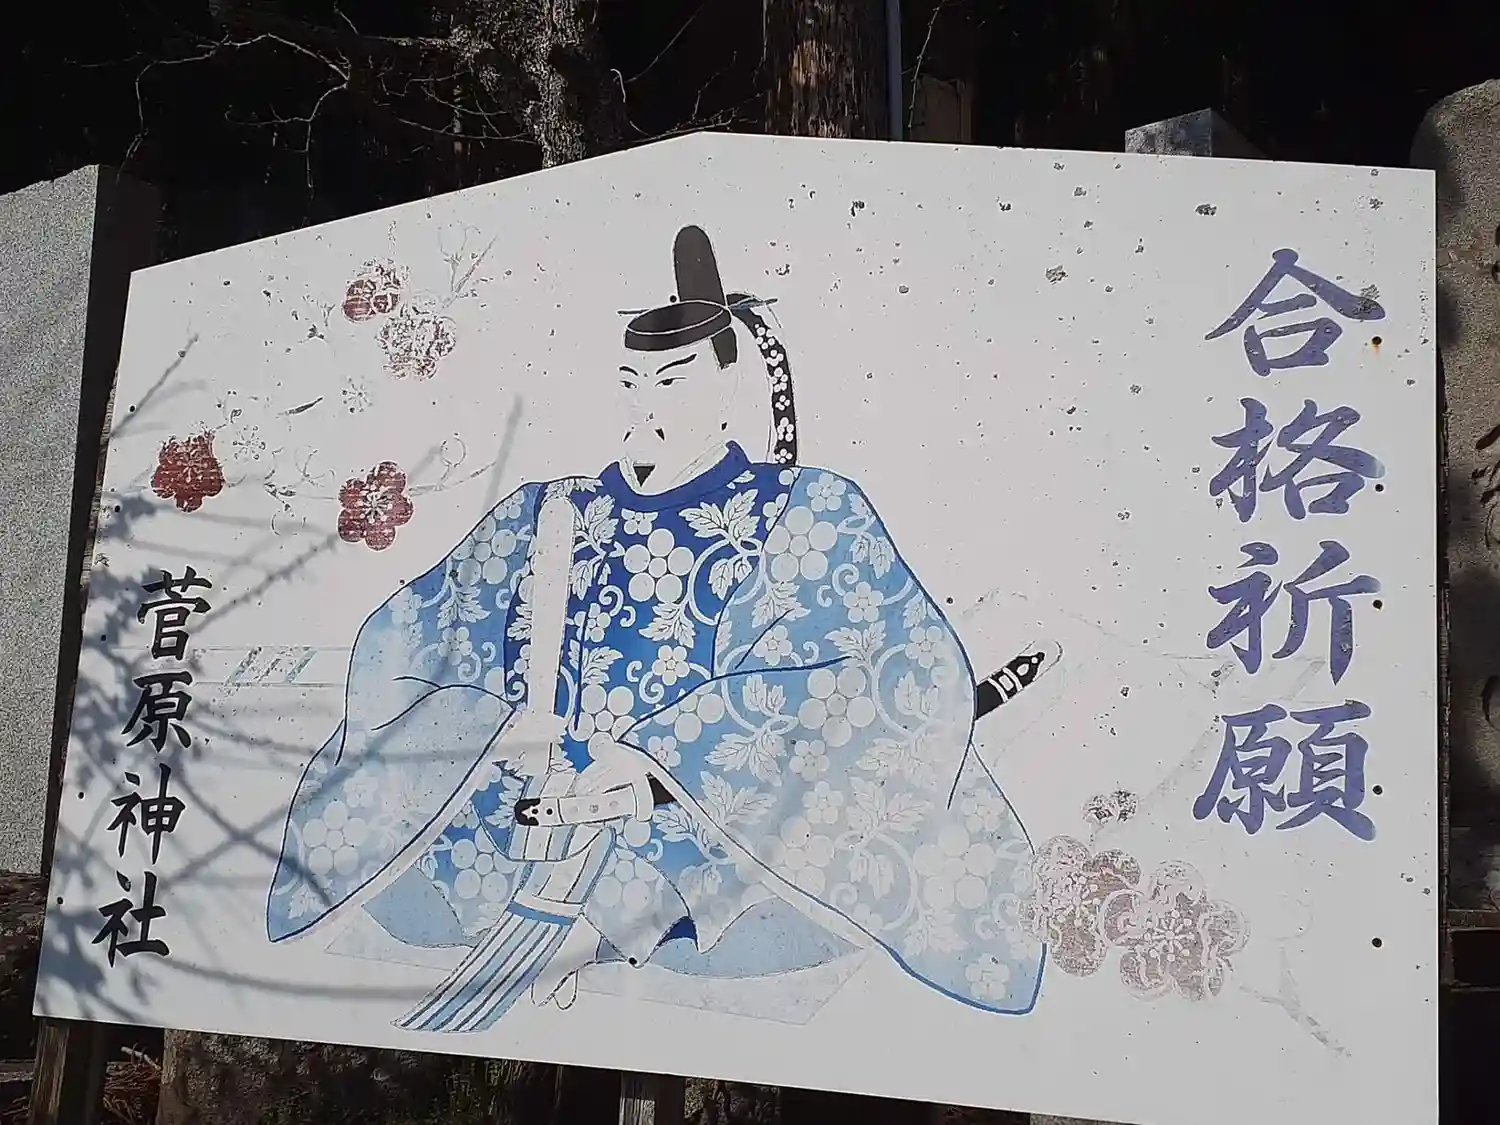 合格祈願
菅原神社